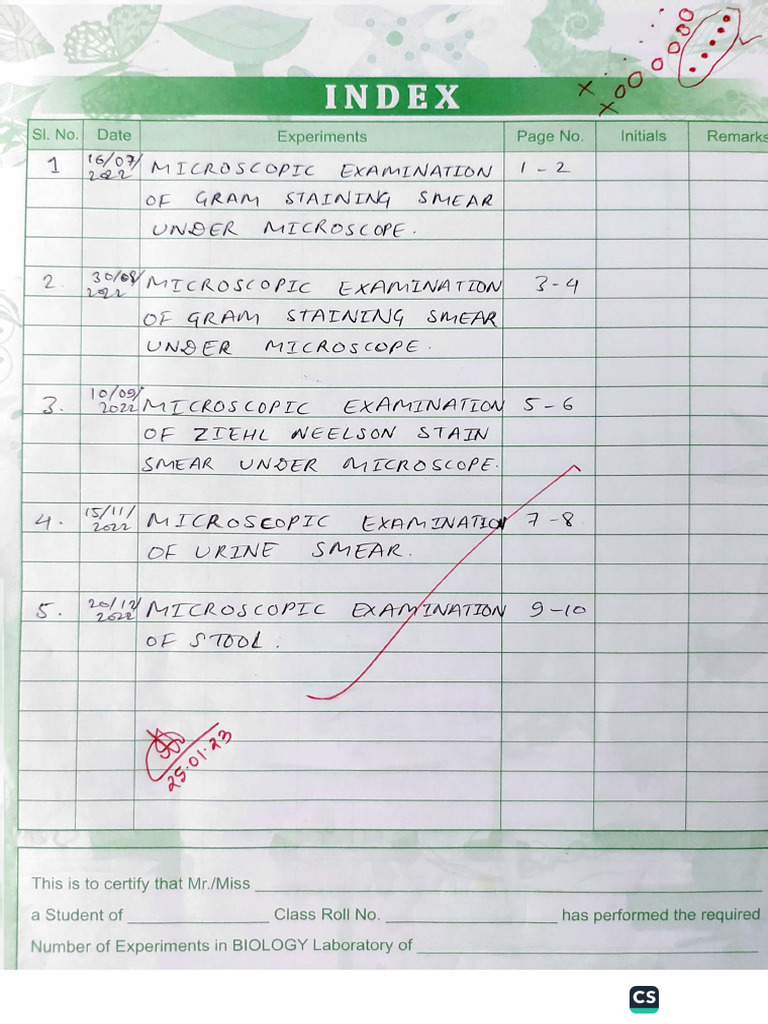 INDEX
Sl. No. Date Experiments Page No. Initials Remarks
1 16/07/2022 MICROSCOPIC EXAMINATION 1-2
OF GRAM STAINING SMEAR
UNDER MICROSCOPE.
2. 30/08/2022 MICROSCOPIC EXAMINATION 3-4
OF GRAM STAINING SMEAR
UNDER MICROSCOPE.
3. 10/09/2022 MICROSCOPIC EXAMINATION 5-6
OF ZIEHL NEELSON STAIN
SMEAR UNDER MICROSCOPE.
4. 15/11/2022 MICROSCOPIC EXAMINATION 7-8
OF URINE SMEAR.
5. 20/12/2022 MICROSCOPIC EXAMINATION 9-10
OF STOOL.
25.01.23
This is to certify that Mr./Miss
a Student of Class Roll No. has performed the required
Number of Experiments in BIOLOGY Laboratory of
CS